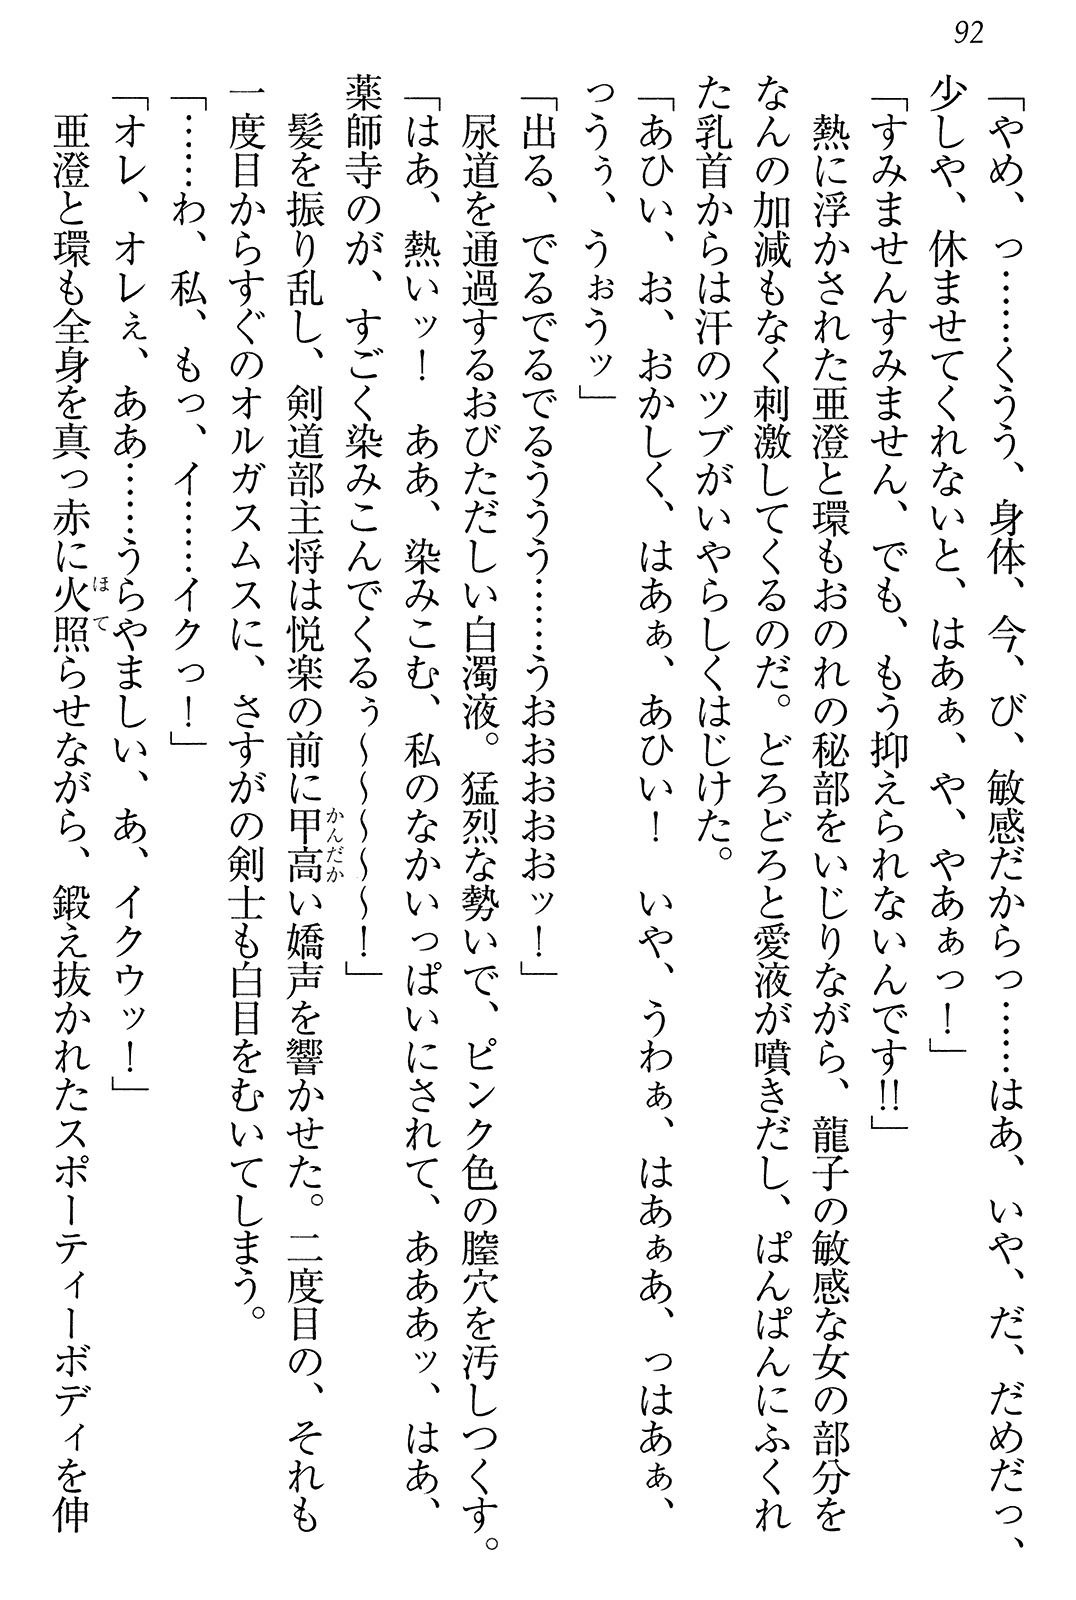 92
「やめ、っ……くうう、身体、今、び、敏感だからっ……はあ、いや、だ、だめだっ、
少しや、休ませてくれないと、はあぁ、や、やあぁっ！」
「すみませんすみません、でも、もう抑えられないんです!!」
熱に浮かされた亜澄と環もおのれの秘部をいじりながら、龍子の敏感な女の部分を
なんの加減もなく刺激してくるのだ。どろどろと愛液が噴きだし、ぱんぱんにふくれ
た乳首からは汗のツブがいやらしくはじけた。
「あひい、お、おかしく、はあぁ、あひい！　いや、うわぁ、はあぁあ、っはあぁ、
っうぅ、うぉうッ」
「出る、でるでるでるううう……うおおおおおッ！」
尿道を通過するおびただしい白濁液。猛烈な勢いで、ピンク色の膣穴を汚しつくす。
「はあ、熱いッ！　ああ、染みこむ、私のなかいっぱいにされて、あああッ、はあ、
薬師寺のが、すごく染みこんでくるぅ～～～～～！」
髪を振り乱し、剣道部主将は悦楽の前に甲高い嬌声を響かせた。二度目の、それも
一度目からすぐのオルガスムスに、さすがの剣士も白目をむいてしまう。
「……わ、私、もっ、イ……イクっ！」
「オレ、オレぇ、ああ……うらやましい、あ、イクウッ！」
亜澄と環も全身を真っ赤に火照らせながら、鍛え抜かれたスポーティーボディを伸
かんだか
ほて